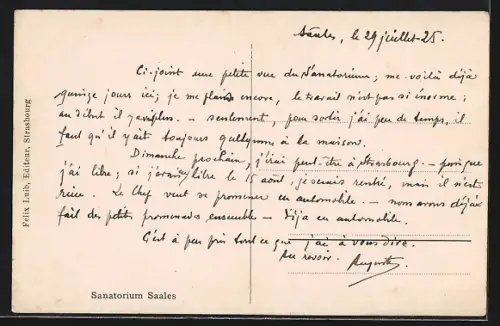 Saales, le 29 juillet 25.
Ci-joint une petite vue du Sanatorium; me voilà déjà
quinze jours ici; je me plais encore, le travail n'est pas si énorme;
au début il y a plus. - seulement, pour sortir j'ai peu de temps, il
faut qu'il y ait toujours quelqu'un à la maison.
Dimanche prochain, j'irai peut-être à Strasbourg. - puisque
j'ai libre; si j'avais libre le 15 août, je serais rentré, mais il n'est
rien. Le Chef veut se promener en automobile. - nous avons déjà
fait des petits promenades ensemble - Déja en automobile.
C'est à peu près tout ce que j'ai à vous dire.
Au revoir. Auguste
Felix Luib, Editeur, Strasbourg
Sanatorium Saales